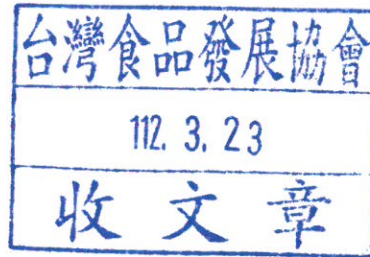 台灣食品發展協會
112. 3. 23
收文章